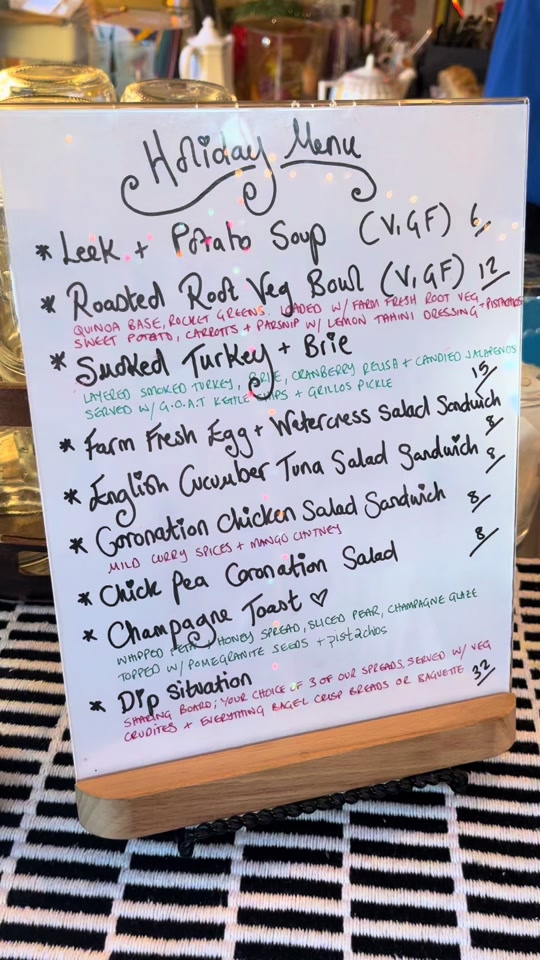 Holiday Menu
* Leek + Potato Soup (V, GF) 6/
* Roasted Root Veg Bowl (V, GF) 12
QUINOA BASE, ROCKET GREENS. LOADED W/ FARM FRESH ROOT VEG,
SWEET POTATO, CARROTS + PARSNIP W/ LEMON TAHINI DRESSING + PISTACHIOS
* Smoked Turkey + Brie
LAYERED SMOKED TURKEY, BRIE, CRANBERRY RELISH + CANDIED JALAPENOS
SERVED W/ G.O.A.T KETTLE CHIPS + GRILLOS PICKLE 15/
* Farm Fresh Egg + Watercress Salad Sandwich 8/
* English Cucumber Tuna Salad Sandwich 8/
* Coronation Chicken Salad Sandwich 8/
MILD CURRY SPICES + MANGO CHUTNEY
* Chick Pea Coronation Salad 8/
* Champagne Toast ♡
WHIPPED FETA + HONEY SPREAD, SLICED PEAR, CHAMPAGNE GLAZE
TOPPED W/ POMEGRANITE SEEDS + pistachios
* Dip Situation
SHARING BOARD; YOUR CHOICE OF 3 OF OUR SPREADS, SERVED W/ VEG
CRUDITES + EVERYTHING BAGEL CRISP BREADS OR BAGUETTE 32